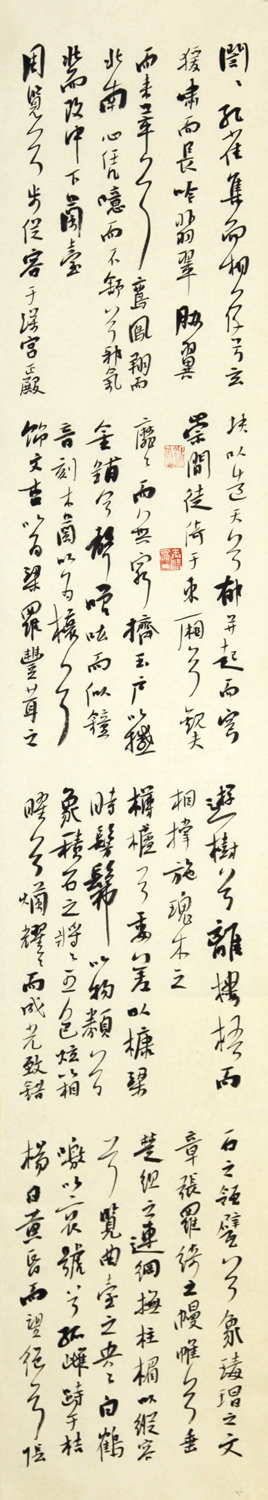 誾〻孔雀集而相存兮玄
猨嘯而長吟翡翠脅翼
而來萃兮鸞鳳翔而
北南心憑噫而不舒兮邪氣
壯而攻中下蘭臺
周覽兮步從容于深宮正殿
塊以造天兮鬱并起而穹
崇間徙倚于東廂兮觀夫
靡〻而無窮擠玉戶以撼
金鋪兮聲噌吰而似鐘
音刻木蘭以為榱兮
飾文杏以為梁羅豐茸之
遊樹兮離樓梧而
相撐施瑰木之
欂櫨兮委參差以槺梁
時髣髴以物類兮
象積石之將〻五色炫以相
曜兮爛耀〻而成光致錯
石之瓴甓兮象瑇瑁之文
章張羅綺之幔帷兮垂
楚組之連綱撫柱楣以縱容
兮覽曲臺之央〻白鶴
噭以哀號兮孤雌跱于枯
楊日黃昏而望絕兮悵